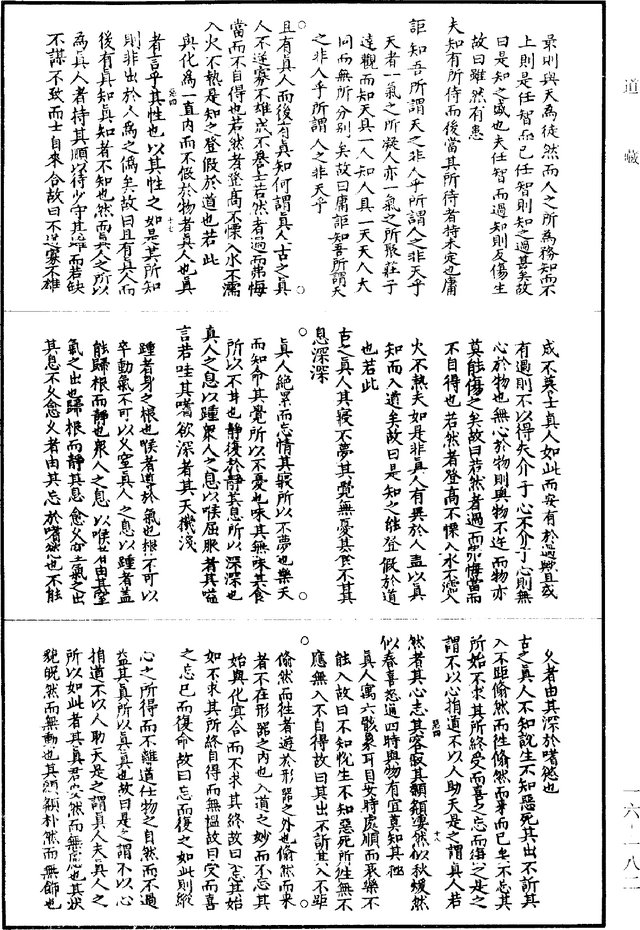 道藏
最則與天為徒然而人之所為務知而不
上則是任智而已任智則知之過甚矣故
曰是知之盛也夫任智而過知則反傷生
故曰雖然有患
夫知有所待而後當其所待者特未定也庸
詎知吾所謂天之非人乎所謂人之非天乎
天者一氣之所凝人亦一氣之所聚莊子
達觀而知天具一人知人具一天天人大
同而無所分別矣故曰庸詎知吾所謂天
之非人乎所謂人之非天乎
且有真人而後有真知何謂真人古之真
人不逆寡不雄成不謩士若然者過而弗悔
當而不自得也若然者登高不慄入水不濡
入火不熱是知之登假於道也若此
與化為一直內而不假於物者真人也真
者言乎其性也以其性之如是其所知
則非出於人為之偽矣故曰且有真人而
後有真知真知者不知也然而真人之所以
為真人者持其順以待少守其雄而若缺
不謀不致而士自來合故曰不逆寡不雄
成不謩士真人如此而安有於過與且或
有過則不以得失介于心不介于心則無
心於物也無心於物則與物不迕而物亦
莫能傷之矣故曰若然者過而弗悔當而
不自得也若然者登高不慄入水不濡入
火不熱夫如是非真人有異於人盡以真
知而入道矣故曰是知之能登假於道
也若此
古之真人其寢不夢其覺無憂其食不甘其
息深深
真人絕累而忘情其寢所以不夢也樂天
而知命其覺所以不憂也味其無味其食
所以不甘也靜復於靜其息所以深深也
真人之息以踵衆人之息以喉屈服者其嗌
言若哇其嗜欲深者其天機淺
踵者身之根也喉者導於氣也根不可以
卒動氣不可以久窒真人之息以踵者蓋
能歸根而靜也衆人之息以喉者由其窒
氣之出也歸根而靜其息愈久窒氣之出
其息不久愈久者由其忘於嗜慾也不能
久者由其深於嗜慾也
古之真人不知說生不知惡死其出不訢其
入不距翛然而往翛然而來而已矣不忘其
所始不求其所終受而喜之忘而復之是之
謂不以心捐道不以人助天是之謂真人若
然者其心志其容寂其顙頯凄然似秋煖然
似春喜怒通四時與物有宜莫知其極
真人寓六骸象耳目安時處順而哀樂不
能入故曰不知悅生不知惡死所往無不
應無入不自得故曰其出不訢其入不距
翛然而往者遊於形器之外也翛然而來
者不在形器之內也入道之妙而不忘其
始與化宜合而不求其終故曰不忘其始
如不求其所終自得而無慍故曰受而喜
之忘已而復命故曰忘而復之如此則縱
心之所得而不離道任物之自然而不過
益其真所以真真也故曰是之謂不以心
捐道不以人助天是之謂真人夫真人之
所以如此者其真君安然而無慮也其狀
貌皃然而無動也其顙頯朴然而無飾也
一六-一八二